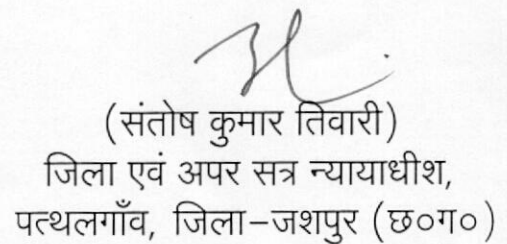 (संतोष कुमार तिवारी)
जिला एवं अपर सत्र न्यायाधीश,
पत्थलगाँव, जिला–जशपुर (छ०ग०)